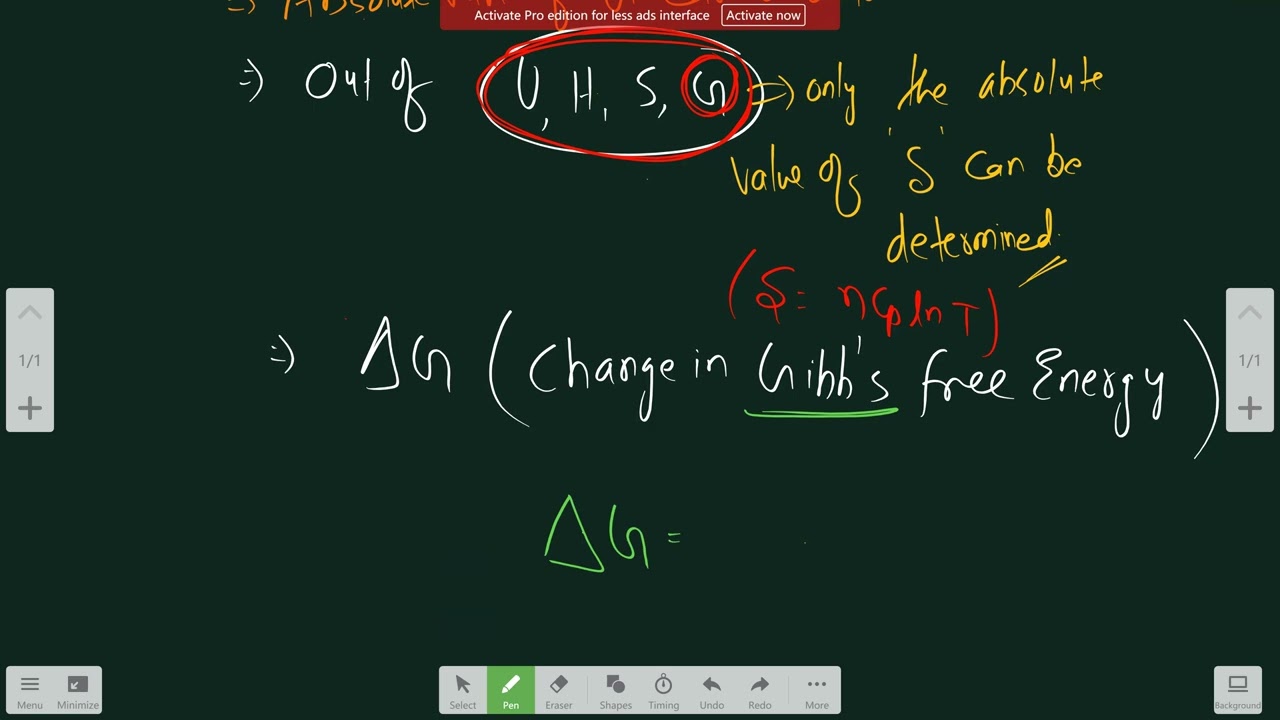 Activate Pro edition for less ads interface Activate now
=) Absolute
=) Out of U, H, S, G => only the absolute
value of 'S' can be
determined
(S = nCp ln T)
=) ΔG (Change in Gibb's free Energy)
ΔG =
1/1
1/1
Menu Minimize Select Pen Eraser Shapes Timing Undo Redo More Background